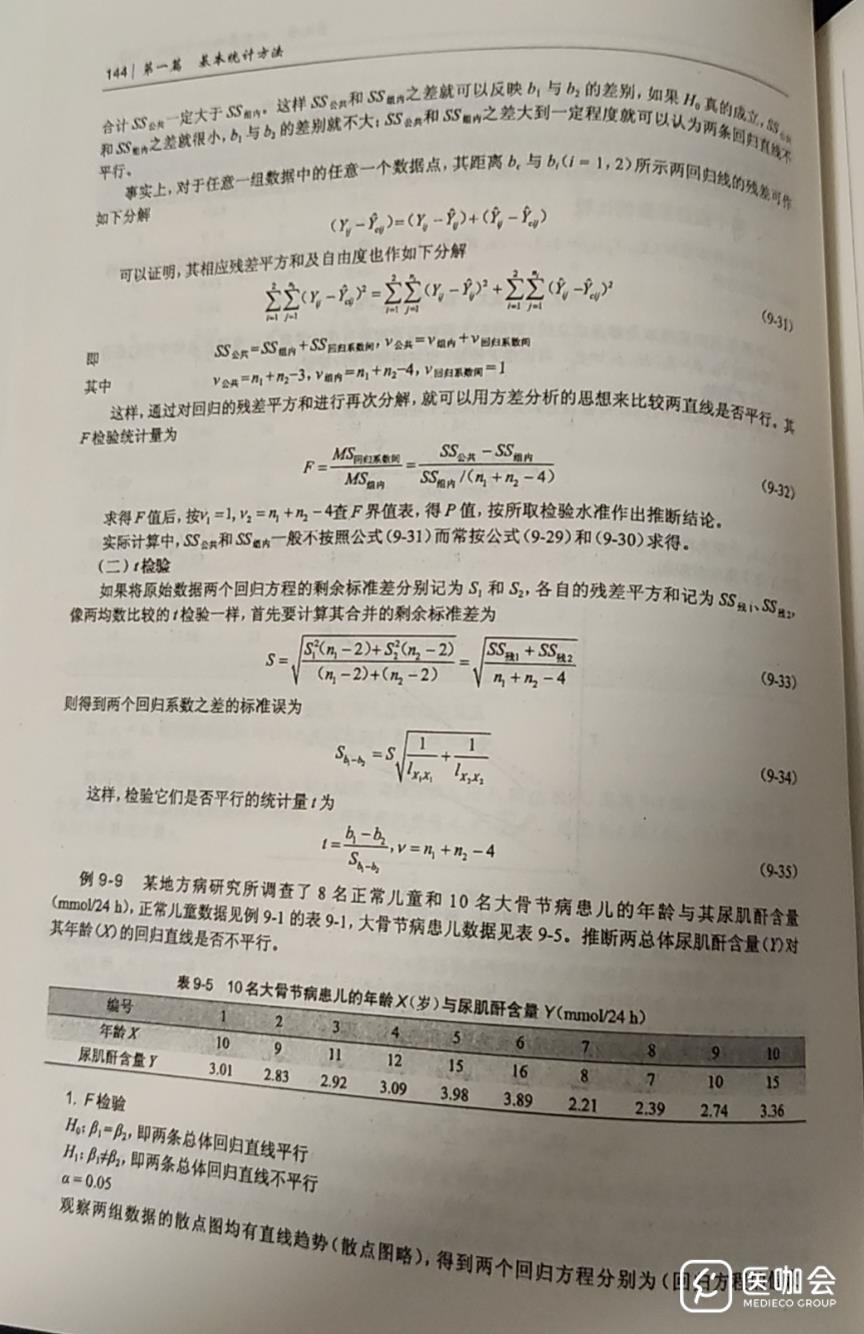 144 | 第一篇 基本统计方法
合计SS公共一定大于SS组内。这样SS公共和SS组内之差就可以反映b₁与b₂的差别,如果H₀真的成立,SS公共
和SS组内之差就很小,b₁与b₂的差别就不大;SS公共和SS组内之差大到一定程度就可以认为两条回归直线不
平行。
事实上,对于任意一组数据中的任意一个数据点,其距离b_c与b_i(i = 1,2)所示两回归线的残差可作
如下分解
(Y_ij − Ŷ_cij)=(Y_ij − Ŷ_ij)+(Ŷ_ij − Ŷ_cij)
可以证明,其相应残差平方和及自由度也作如下分解
∑_{i=1}^{2}∑_{j=1}^{n_i}(Y_ij − Ŷ_cij)² = ∑_{i=1}^{2}∑_{j=1}^{n_i}(Y_ij − Ŷ_ij)² + ∑_{i=1}^{2}∑_{j=1}^{n_i}(Ŷ_ij − Ŷ_cij)² (9-31)
即 SS公共=SS组内+SS回归系数间, ν公共=ν组内+ν回归系数间
其中 ν公共=n₁+n₂−3, ν组内=n₁+n₂−4, ν回归系数间=1
这样,通过对回归的残差平方和进行再次分解,就可以用方差分析的思想来比较两直线是否平行。其
F检验统计量为
F= MS回归系数间/MS组内 = (SS公共 − SS组内)/(SS组内/(n₁ + n₂ − 4)) (9-32)
求得F值后,按ν₁ =1, ν₂ = n₁ + n₂ − 4查F界值表,得P值,按所取检验水准作出推断结论。
实际计算中,SS公共和SS组内一般不按照公式(9-31)而常按公式(9-29)和(9-30)求得。
(二) t检验
如果将原始数据两个回归方程的剩余标准差分别记为S₁和S₂,各自的残差平方和记为SS残1、SS残2,
像两均数比较的t检验一样,首先要计算其合并的剩余标准差为
S= √((S₁²(n₁ − 2)+ S₂²(n₂ − 2))/((n₁ − 2)+(n₂ − 2))) = √((SS残1 + SS残2)/(n₁ + n₂ − 4)) (9-33)
则得到两个回归系数之差的标准误为
S_{b₁−b₂} = S√(1/l_{X₁X₁} + 1/l_{X₂X₂}) (9-34)
这样,检验它们是否平行的统计量t为
t= (b₁ − b₂)/S_{b₁−b₂}, ν = n₁ + n₂ − 4 (9-35)
例9-9 某地方病研究所调查了8名正常儿童和10名大骨节病患儿的年龄与其尿肌酐含量
(mmol/24 h),正常儿童数据见例9-1的表9-1,大骨节病患儿数据见表9-5。推断两总体尿肌酐含量(Y)对
其年龄(X)的回归直线是否不平行。
表9-5 10名大骨节病患儿的年龄X(岁)与尿肌酐含量Y(mmol/24 h)
编号 1 2 3 4 5 6 7 8 9 10
年龄X 10 9 11 12 15 16 8 7 10 15
尿肌酐含量Y 3.01 2.83 2.92 3.09 3.98 3.89 2.21 2.39 2.74 3.36
1. F检验
H₀: β₁=β₂,即两条总体回归直线平行
H₁: β₁≠β₂,即两条总体回归直线不平行
α = 0.05
观察两组数据的散点图均有直线趋势(散点图略),得到两个回归方程分别为(回归方程
医咖会
MEDIECO GROUP